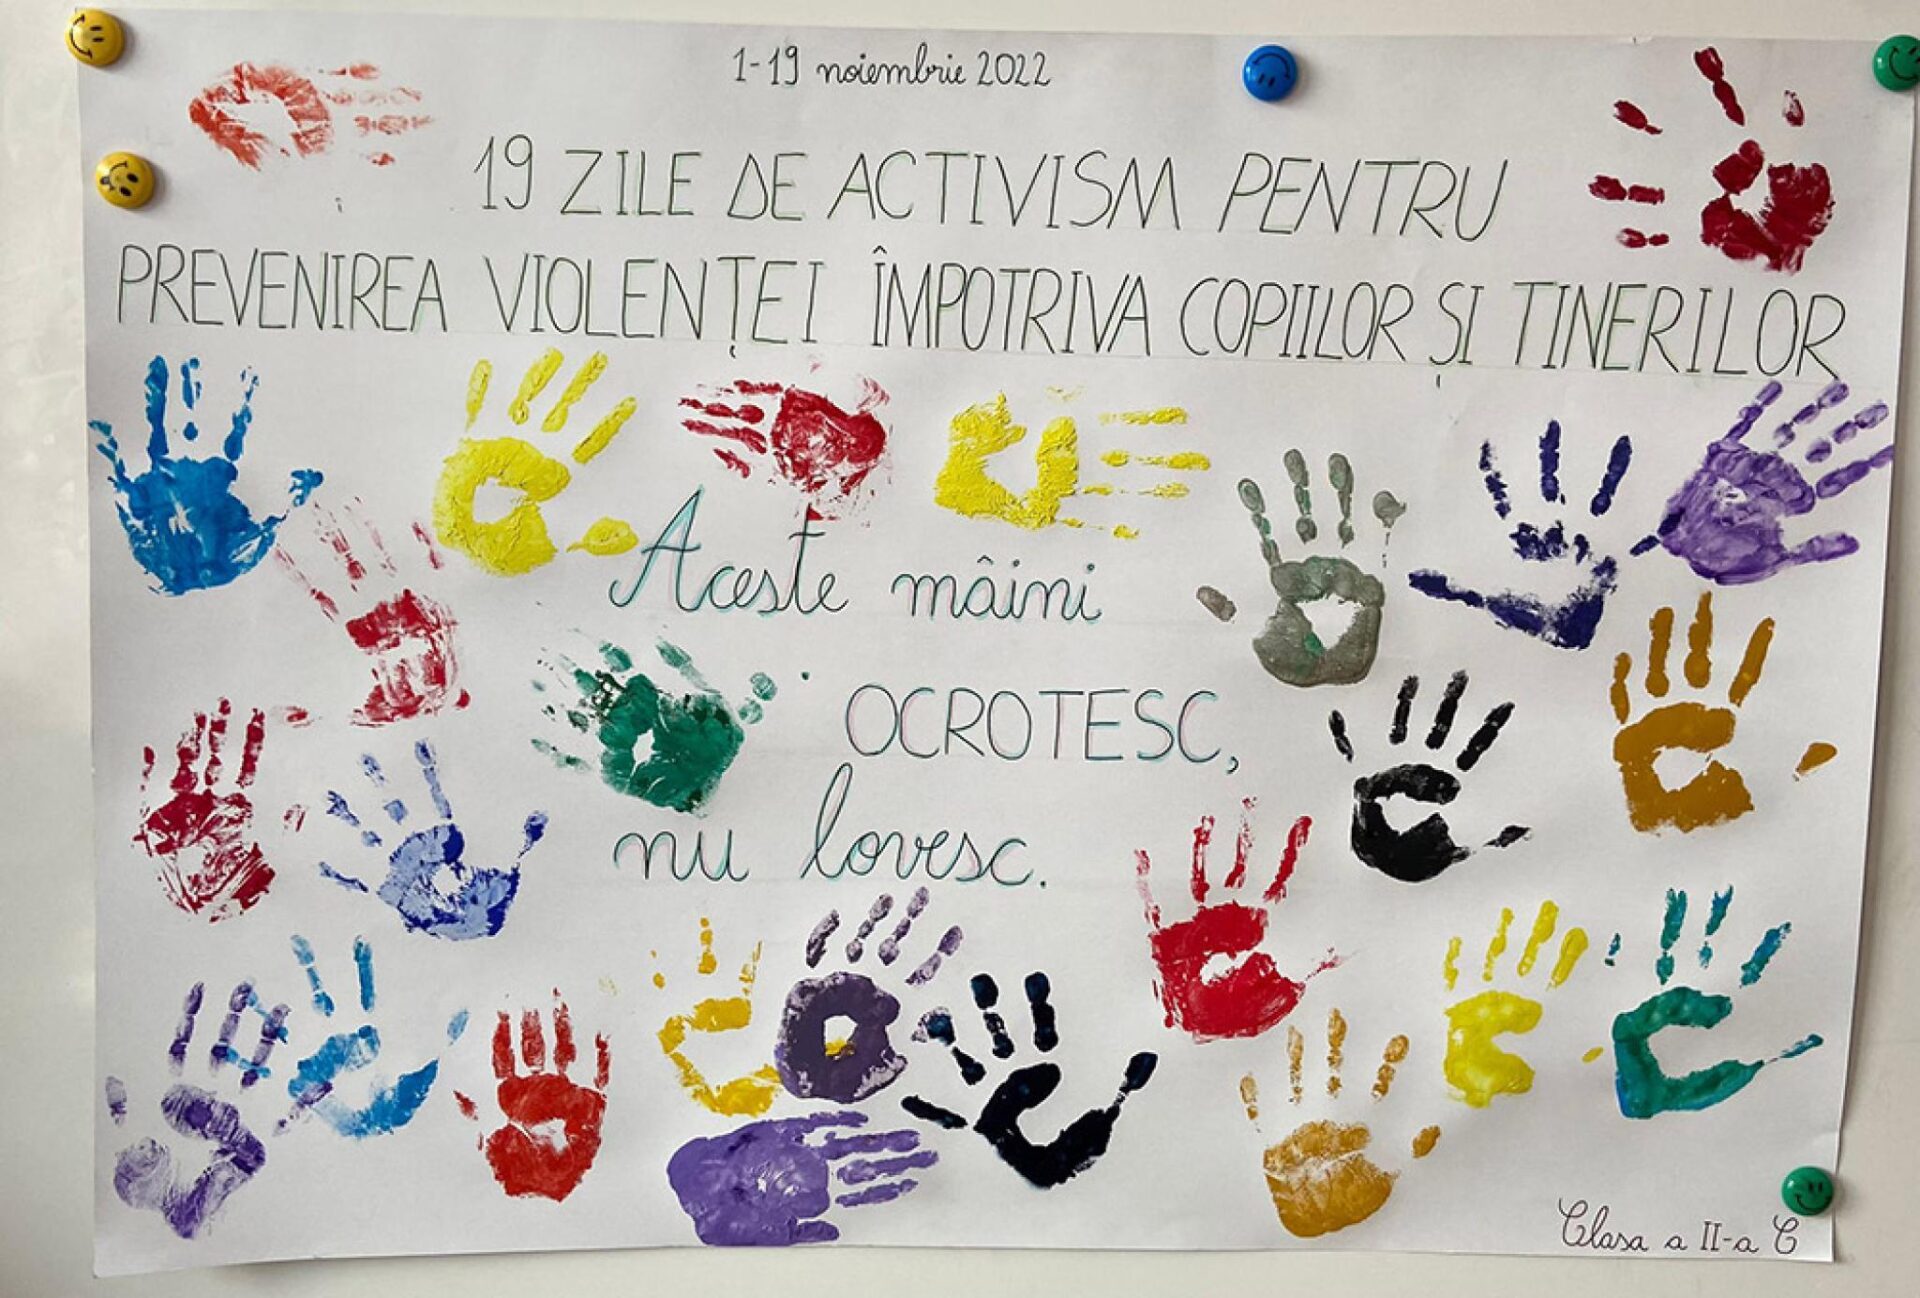 1-19 noiembrie 2022
19 ZILE DE ACTIVISM PENTRU
PREVENIREA VIOLENȚEI ÎMPOTRIVA COPIILOR ȘI TINERILOR
Aceste mâini
OCROTESC,
nu lovesc.
Clasa a II-a C